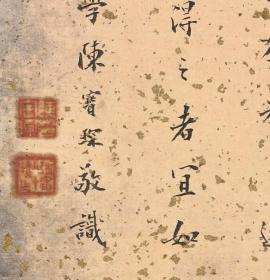 得之者宜如
學陳寶琛敬識